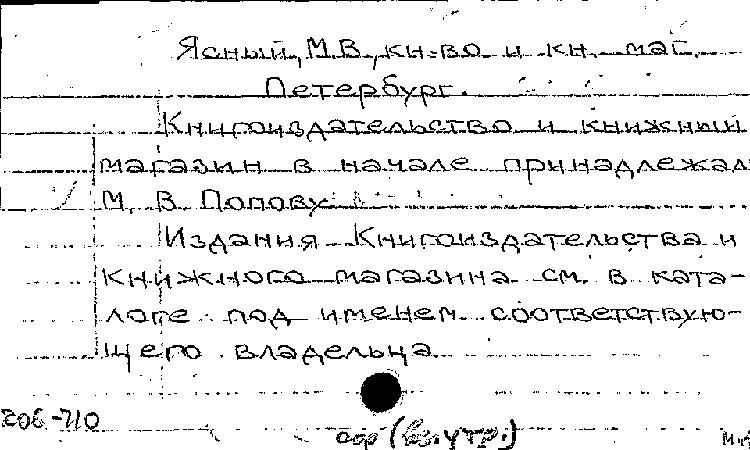 Ясный, М.В., кн-во и кн. маг.
Петербург.
Книгоиздательство и книжный
магазин в начале принадлежал
М. В. Попову.
Издания Книгоиздательства и
Книжного магазина см. в ката-
логе под именем соответствую-
щего владельца
206-710